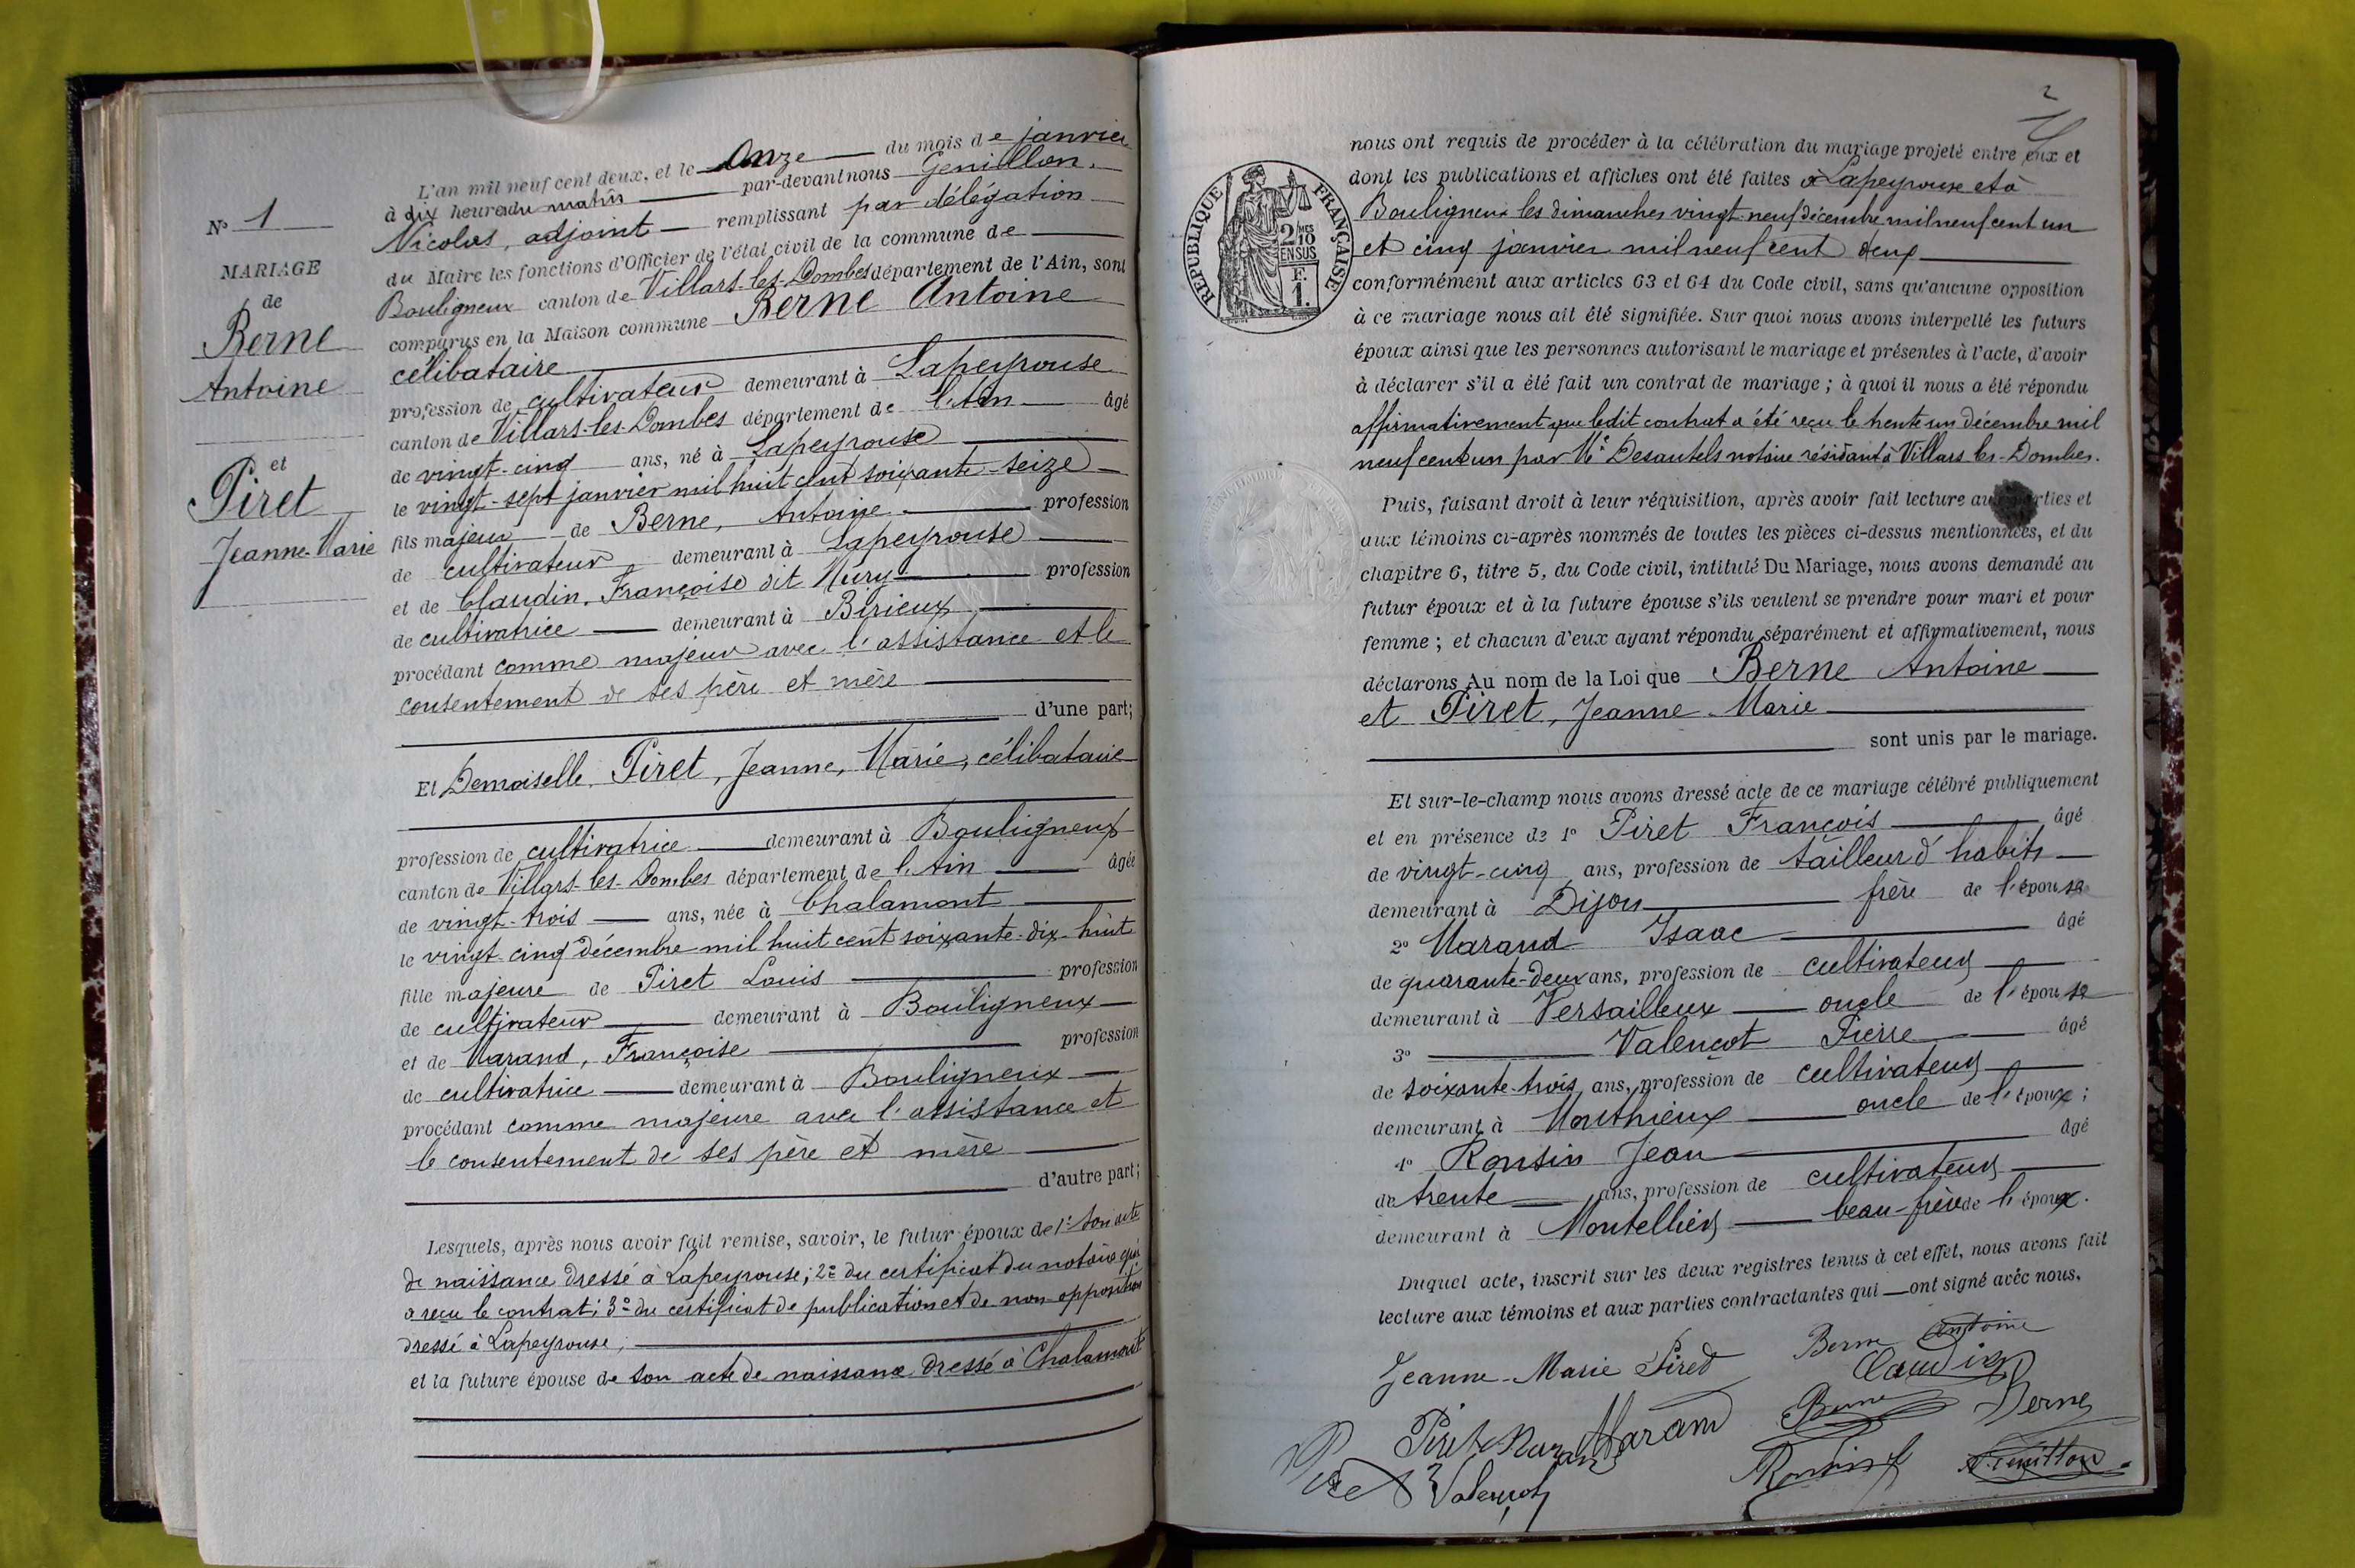 N° 1
MARIAGE
de
Berne
Antoine
et
Piret
Jeanne-Marie
L'an mil neuf cent deux, et le Onze du mois de janvier
à dix heures du matin par-devant nous Genillon.
Nicolas, adjoint remplissant par délégation
du Maire les fonctions d'Officier de l'état civil de la commune de
Bouligneux canton de Villars-les-Dombes département de l'Ain, sont
comparus en la Maison commune Berne Antoine
célibataire
profession de cultivateur demeurant à Lapeyrouse
canton de Villars-les-Dombes département de l'Ain âgé
de vingt-cinq ans, né à Lapeyrouse
le vingt-sept janvier mil huit cent soixante-seize
fils majeur de Berne, Antoine profession
de cultivateur demeurant à Lapeyrouse
et de Claudin, Françoise dit Mury profession
de cultivatrice demeurant à Birieux
procédant comme majeur avec l'assistance et le
consentement de ses père et mère
d'une part;
Et Demoiselle, Piret, Jeanne, Marie, célibataire
profession de cultivatrice demeurant à Bouligneux
canton de Villars-les-Dombes département de l'Ain âgée
de vingt-trois ans, née à Chalamont
le vingt-cinq décembre mil huit cent soixante-dix-huit
fille majeure de Piret Louis profession
de cultivateur demeurant à Bouligneux
et de Marand, Françoise profession
de cultivatrice demeurant à Bouligneux
procédant comme majeure avec l'assistance et
le consentement de ses père et mère
d'autre part;
Lesquels, après nous avoir fait remise, savoir, le futur époux de 1° son acte
de naissance dressé à Lapeyrouse; 2° du certificat du notaire qui
a reçu le contrat; 3° du certificat de publication et de non opposition
dressé à Lapeyrouse;
et la future épouse de son acte de naissance dressé à Chalamont
2
RÉPUBLIQUE FRANÇAISE
2/10 MES
EN SUS
F.
1.
nous ont requis de procéder à la célébration du mariage projeté entre eux et
dont les publications et affiches ont été faites à Lapeyrouse et à
Bouligneux les dimanches vingt-neuf décembre mil neuf cent un
et cinq janvier mil neuf cent deux
conformément aux articles 63 et 64 du Code civil, sans qu'aucune opposition
à ce mariage nous ait été signifiée. Sur quoi nous avons interpellé les futurs
époux ainsi que les personnes autorisant le mariage et présentes à l'acte, d'avoir
à déclarer s'il a été fait un contrat de mariage; à quoi il nous a été répondu
affirmativement que ledit contrat a été reçu le trente un décembre mil
neuf cent un par Me Desautels notaire résidant à Villars-les-Dombes.
Puis, faisant droit à leur réquisition, après avoir fait lecture aux parties et
aux témoins ci-après nommés de toutes les pièces ci-dessus mentionnées, et du
chapitre 6, titre 5, du Code civil, intitulé Du Mariage, nous avons demandé au
futur époux et à la future épouse s'ils veulent se prendre pour mari et pour
femme; et chacun d'eux ayant répondu séparément et affirmativement, nous
déclarons Au nom de la Loi que Berne Antoine
et Piret, Jeanne-Marie
sont unis par le mariage.
Et sur-le-champ nous avons dressé acte de ce mariage célébré publiquement
et en présence de 1° Piret François âgé
de vingt-cinq ans, profession de tailleur d'habits
demeurant à Dijon frère de l'épouse
2° Marand Isaac âgé
de quarante-deux ans, profession de cultivateur
demeurant à Versailleux oncle de l'épouse
3° Valençot Pierre âgé
de soixante-trois ans, profession de cultivateur
demeurant à Monthieux oncle de l'époux;
4° Ronsin Jean âgé
de trente ans, profession de cultivateur
demeurant à Montellier beau-frère de l'époux.
Duquel acte, inscrit sur les deux registres tenus à cet effet, nous avons fait
lecture aux témoins et aux parties contractantes qui ont signé avec nous.
Jeanne-Marie Piret Berne Antoine
Claudin
Piret Marand Berne Berne
Piret Valençot Ronsin Genillon